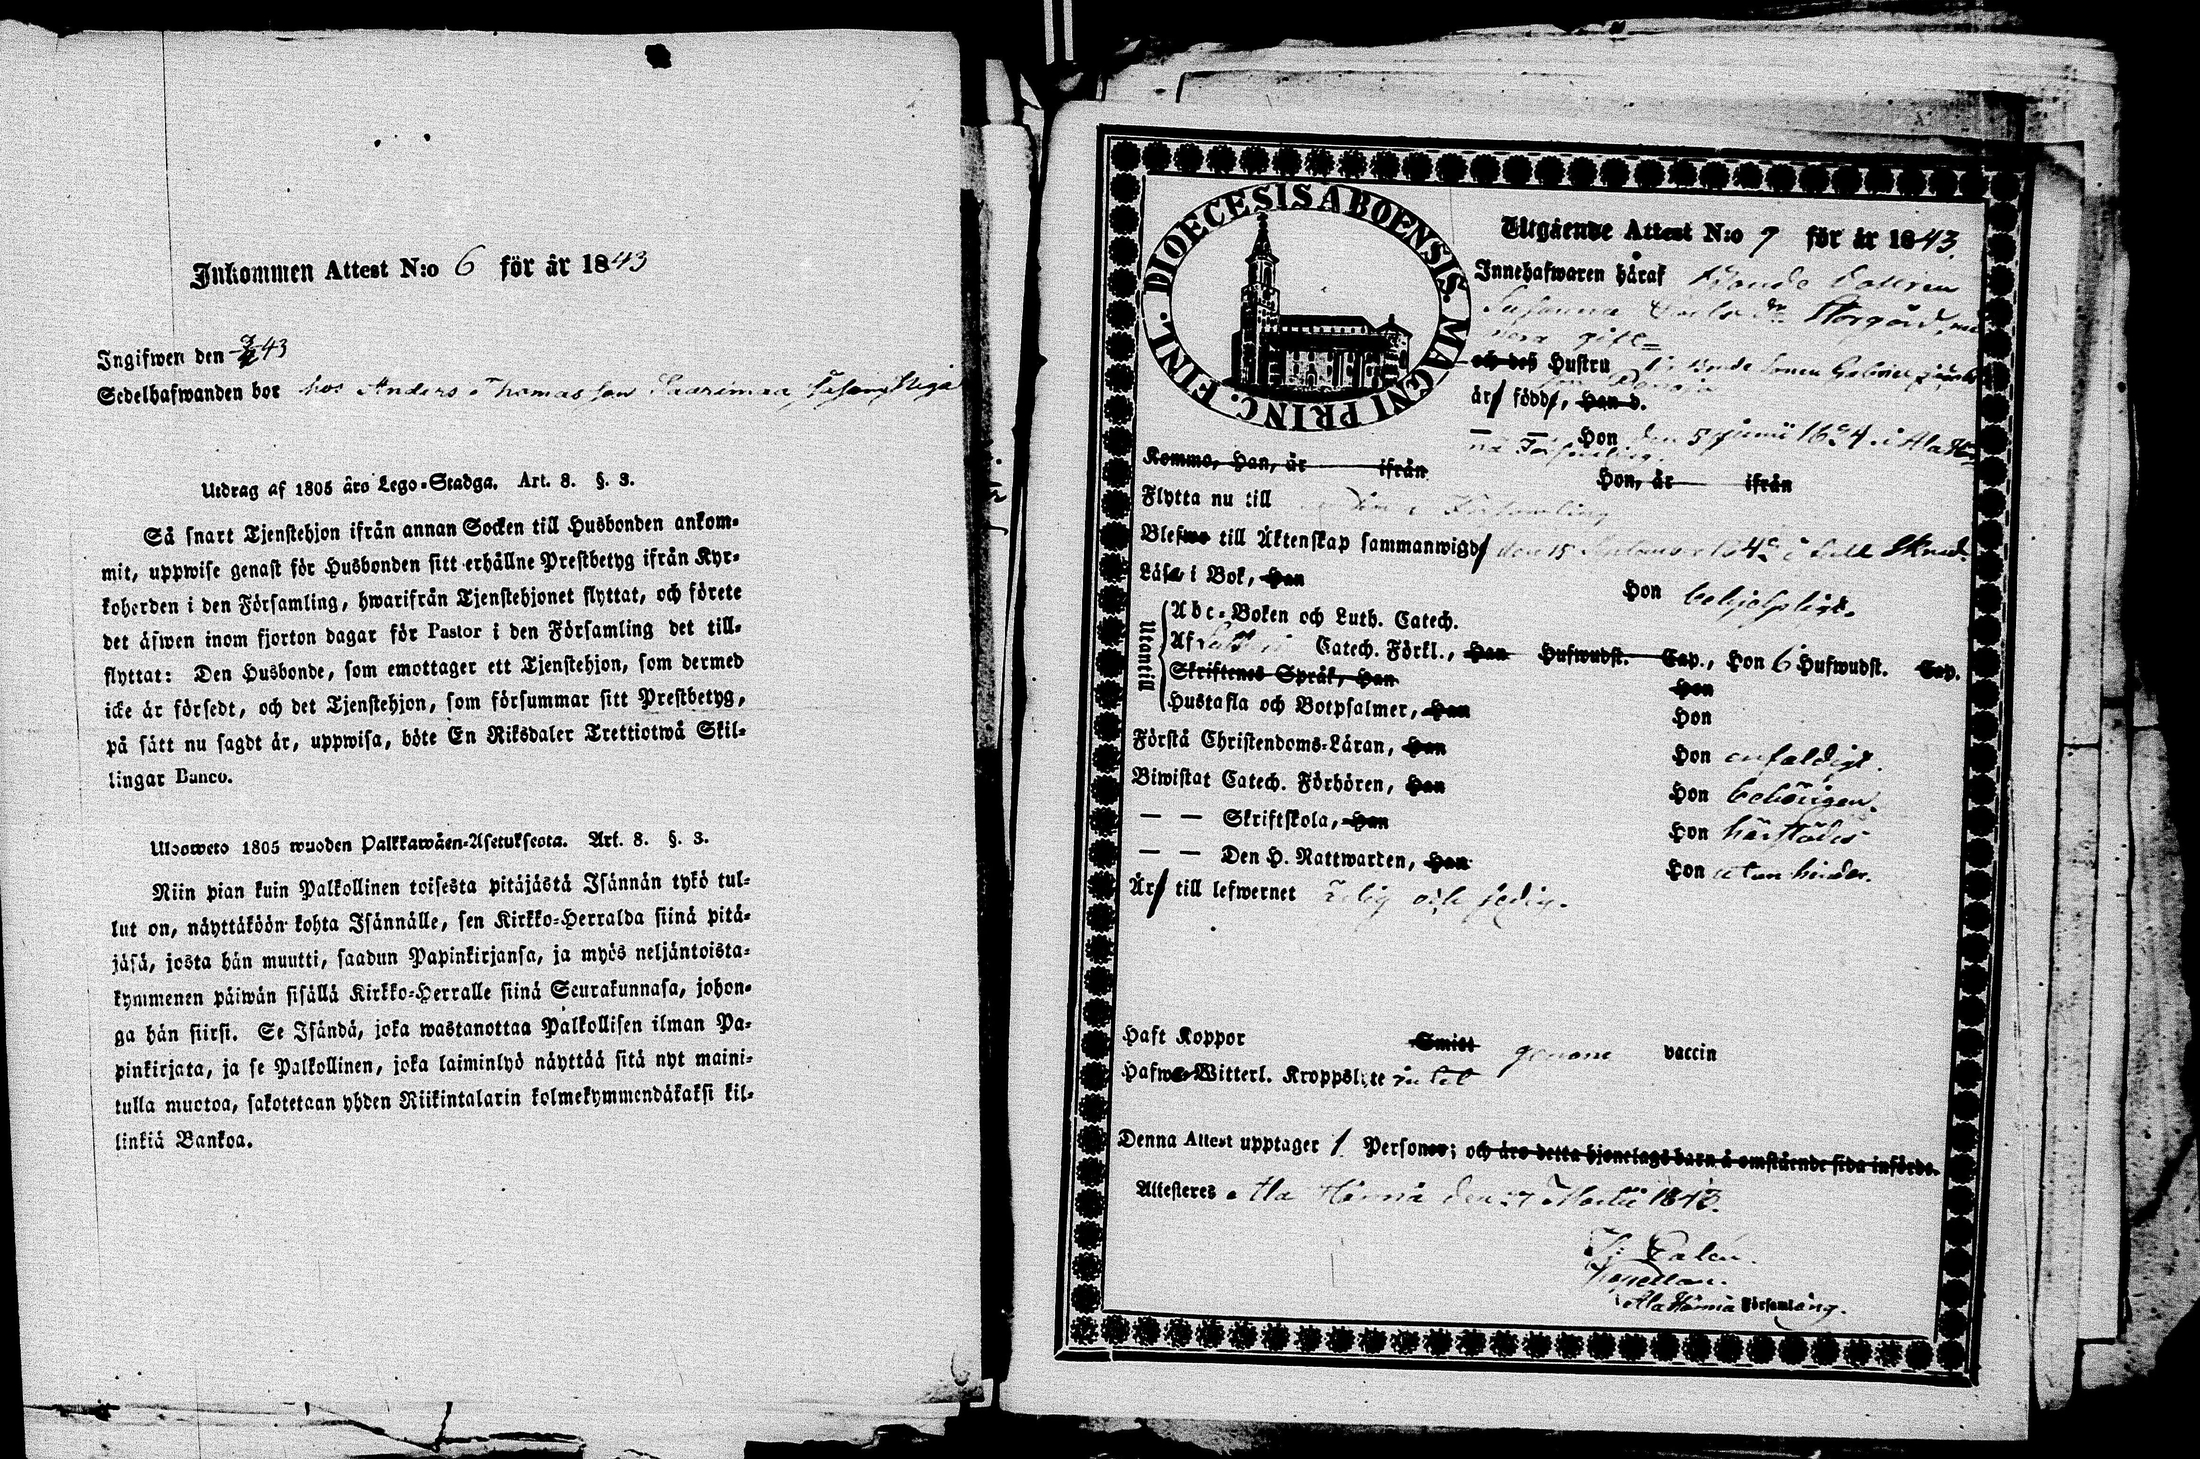 Inkommen Attest N:o 6 för år 1843
Ingifwen den 43
Sedelhafwanden bor hos Anders Thomasson Saarimaa
Utdrag af 1805 års Lego-Stadga. Art. 8. §. 3.
Så snart Tjenstehjon ifrån annan Socken till Husbonden ankom-
mit, uppwise genast för Husbonden sitt erhållne Prestbetyg ifrån Kyr-
koherden i den Församling, hwarifrån Tjenstehjonet flyttat, och förete
det äfwen inom fjorton dagar för Pastor i den Församling det till-
flyttat: Den Husbonde, som emottager ett Tjenstehjon, som dermed
icke är försedt, och det Tjenstehjon, som försummar sitt Prestbetyg,
på sätt nu sagdt är, uppwisa, böte En Riksdaler Trettiotwå Skil-
lingar Banco.
Uloosweto 1805 wuoden Palkkawäen-Asetuksesta. Art. 8. §. 3.
Niin pian kuin Palkollinen toisesta pitäjästä Isännän tykö tul-
lut on, näyttäköön kohta Isännälle, sen Kirkko-Herralda siinä pitä-
jäsä, josta hän muutti, saadun Papinkirjansa, ja myös neljäntoista-
kymmenen päiwän sisällä Kirkko-Herralle siinä Seurakunnasa, johon-
ga hän siirsi. Se Isändä, joka wastanottaa Palkollisen ilman Pa-
pinkirjata, ja se Palkollinen, joka laiminlyö näyttää sitä nyt maini-
tulla muotoa, sakotetaan yhden Riikintalarin kolmekymmendäkaksi kil-
linkiä Bankoa.
DIOECESIS ABOENSIS. MAGNI PRINC. FINL.
Utgående Attest N:o 9 för år 1843.
Innehafwaren häraf Bonde Dottren
Susanna Storgård,
och des Hustru Bonde Sonen Gabriel
är född, Han d.
— — Hon den 5 Junii 1824 i Ala Här-
mä Församling.
Kommo, Han, år ifrån Hon, år ifrån
Flytta nu till Församling
Blefwo till Äktenskap sammanwigd den 15
Läsa i Bok, Han Hon behjelpligt.
Utantill
Abc-Boken och Luth. Catech.
Af Catech. Förkl., Han Hufwudst. Cap., Hon 6 Hufwudst. Cap.
Skriftenes Språk, Han Hon
Hustafla och Botpsalmer, Han Hon
Förstå Christendoms-Läran, Han Hon enfaldigt.
Biwistat Catech. Förhören, Han Hon behörigen.
— — Skriftskola, Han Hon härstädes
— — Den H. Nattwarden, Han Hon utan hinder.
Är till lefwernet ärlig och sedig.
Haft Koppor Smitt genom vaccin
Hafwa Witterl. Kroppslyte intet
Denna Attest upptager 1 Personer; och äro detta hjonelags barn å omstående sida införde.
Attesteres Ala Härmä den 27 Martii 1843.
Kapellan.
Ala Härmä Församling.